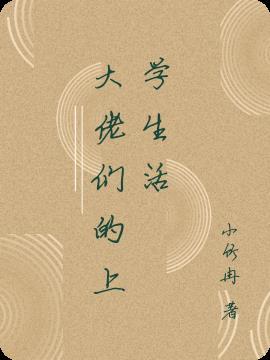 大佬们的上
学生活
小冉 著